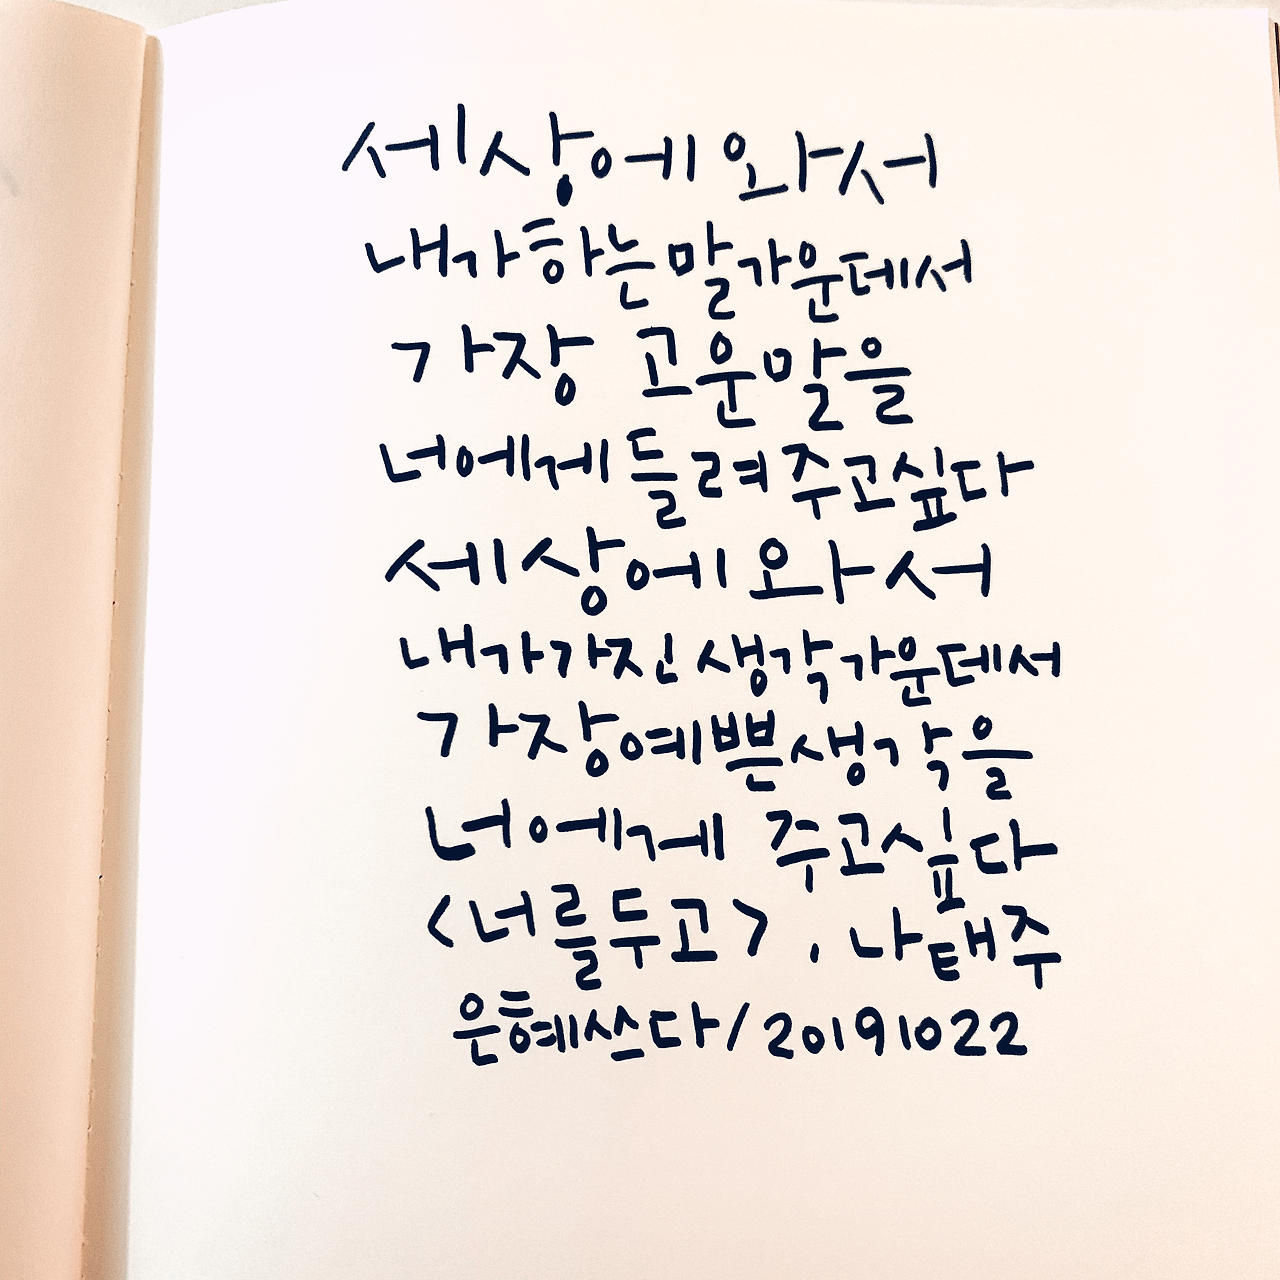 세상에 와서
내가 하는 말 가운데서
가장 고운 말을
너에게 들려주고 싶다
세상에 와서
내가 가진 생각 가운데서
가장 예쁜 생각을
너에게 주고 싶다
<너를 두고>, 나태주
은혜쓰다/20191022